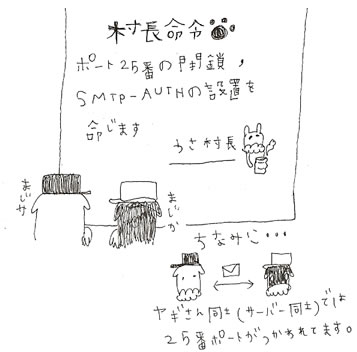 村長命令
ポート25番の閉鎖,
SMTP-AUTHの設置を
命じます
うさ村長
まじか
まじか
ちなみに…
ヤギさん同士(サーバー同士)では
25番ポートがつかわれてます。